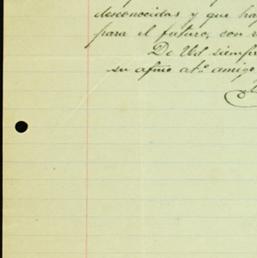 desconocidas y que ha
para el futuro, con
De Ud siempre
su afmo atº amigo